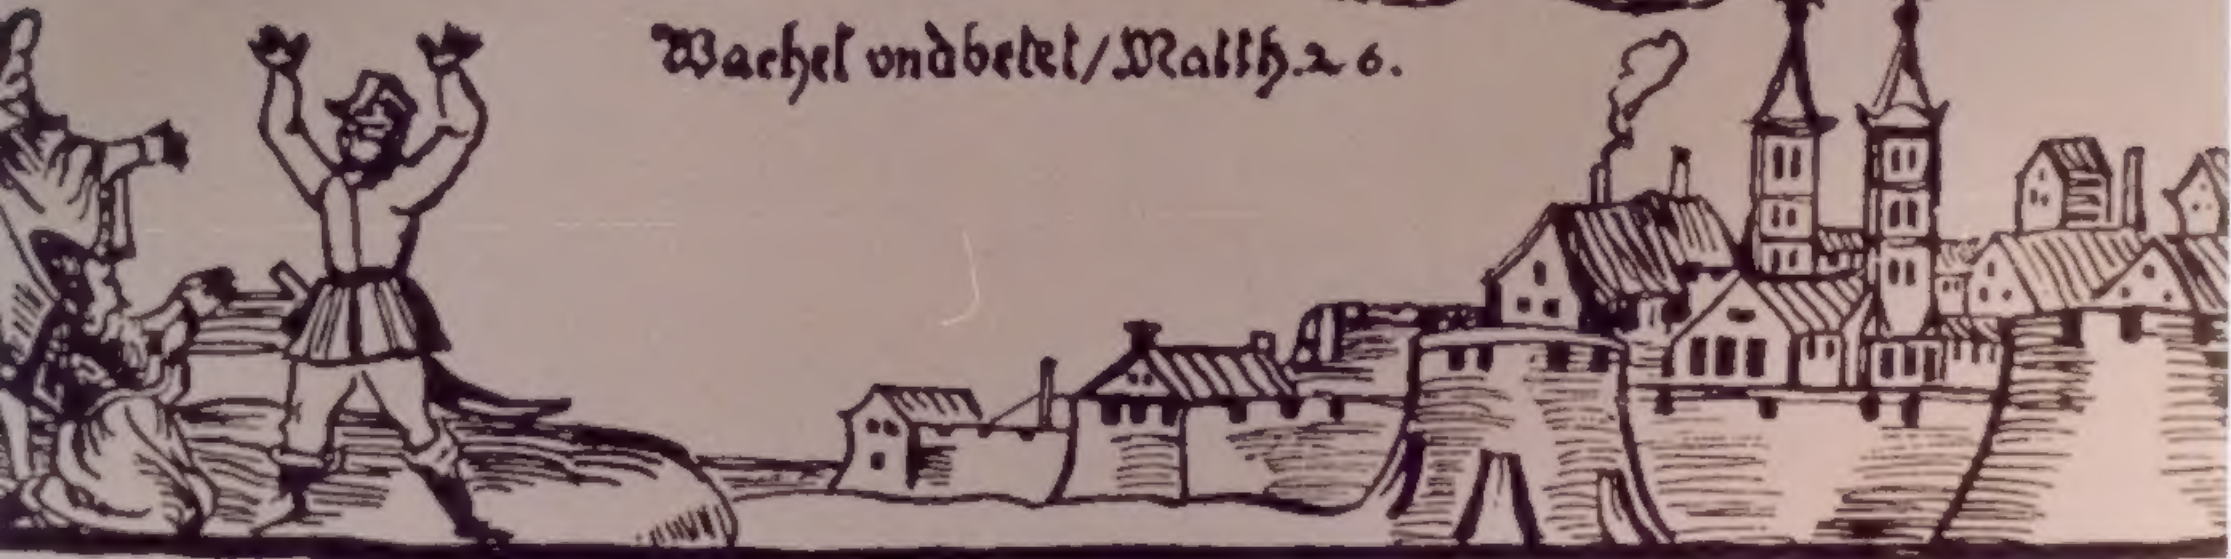 Wachet vndbetet/Matth.26.